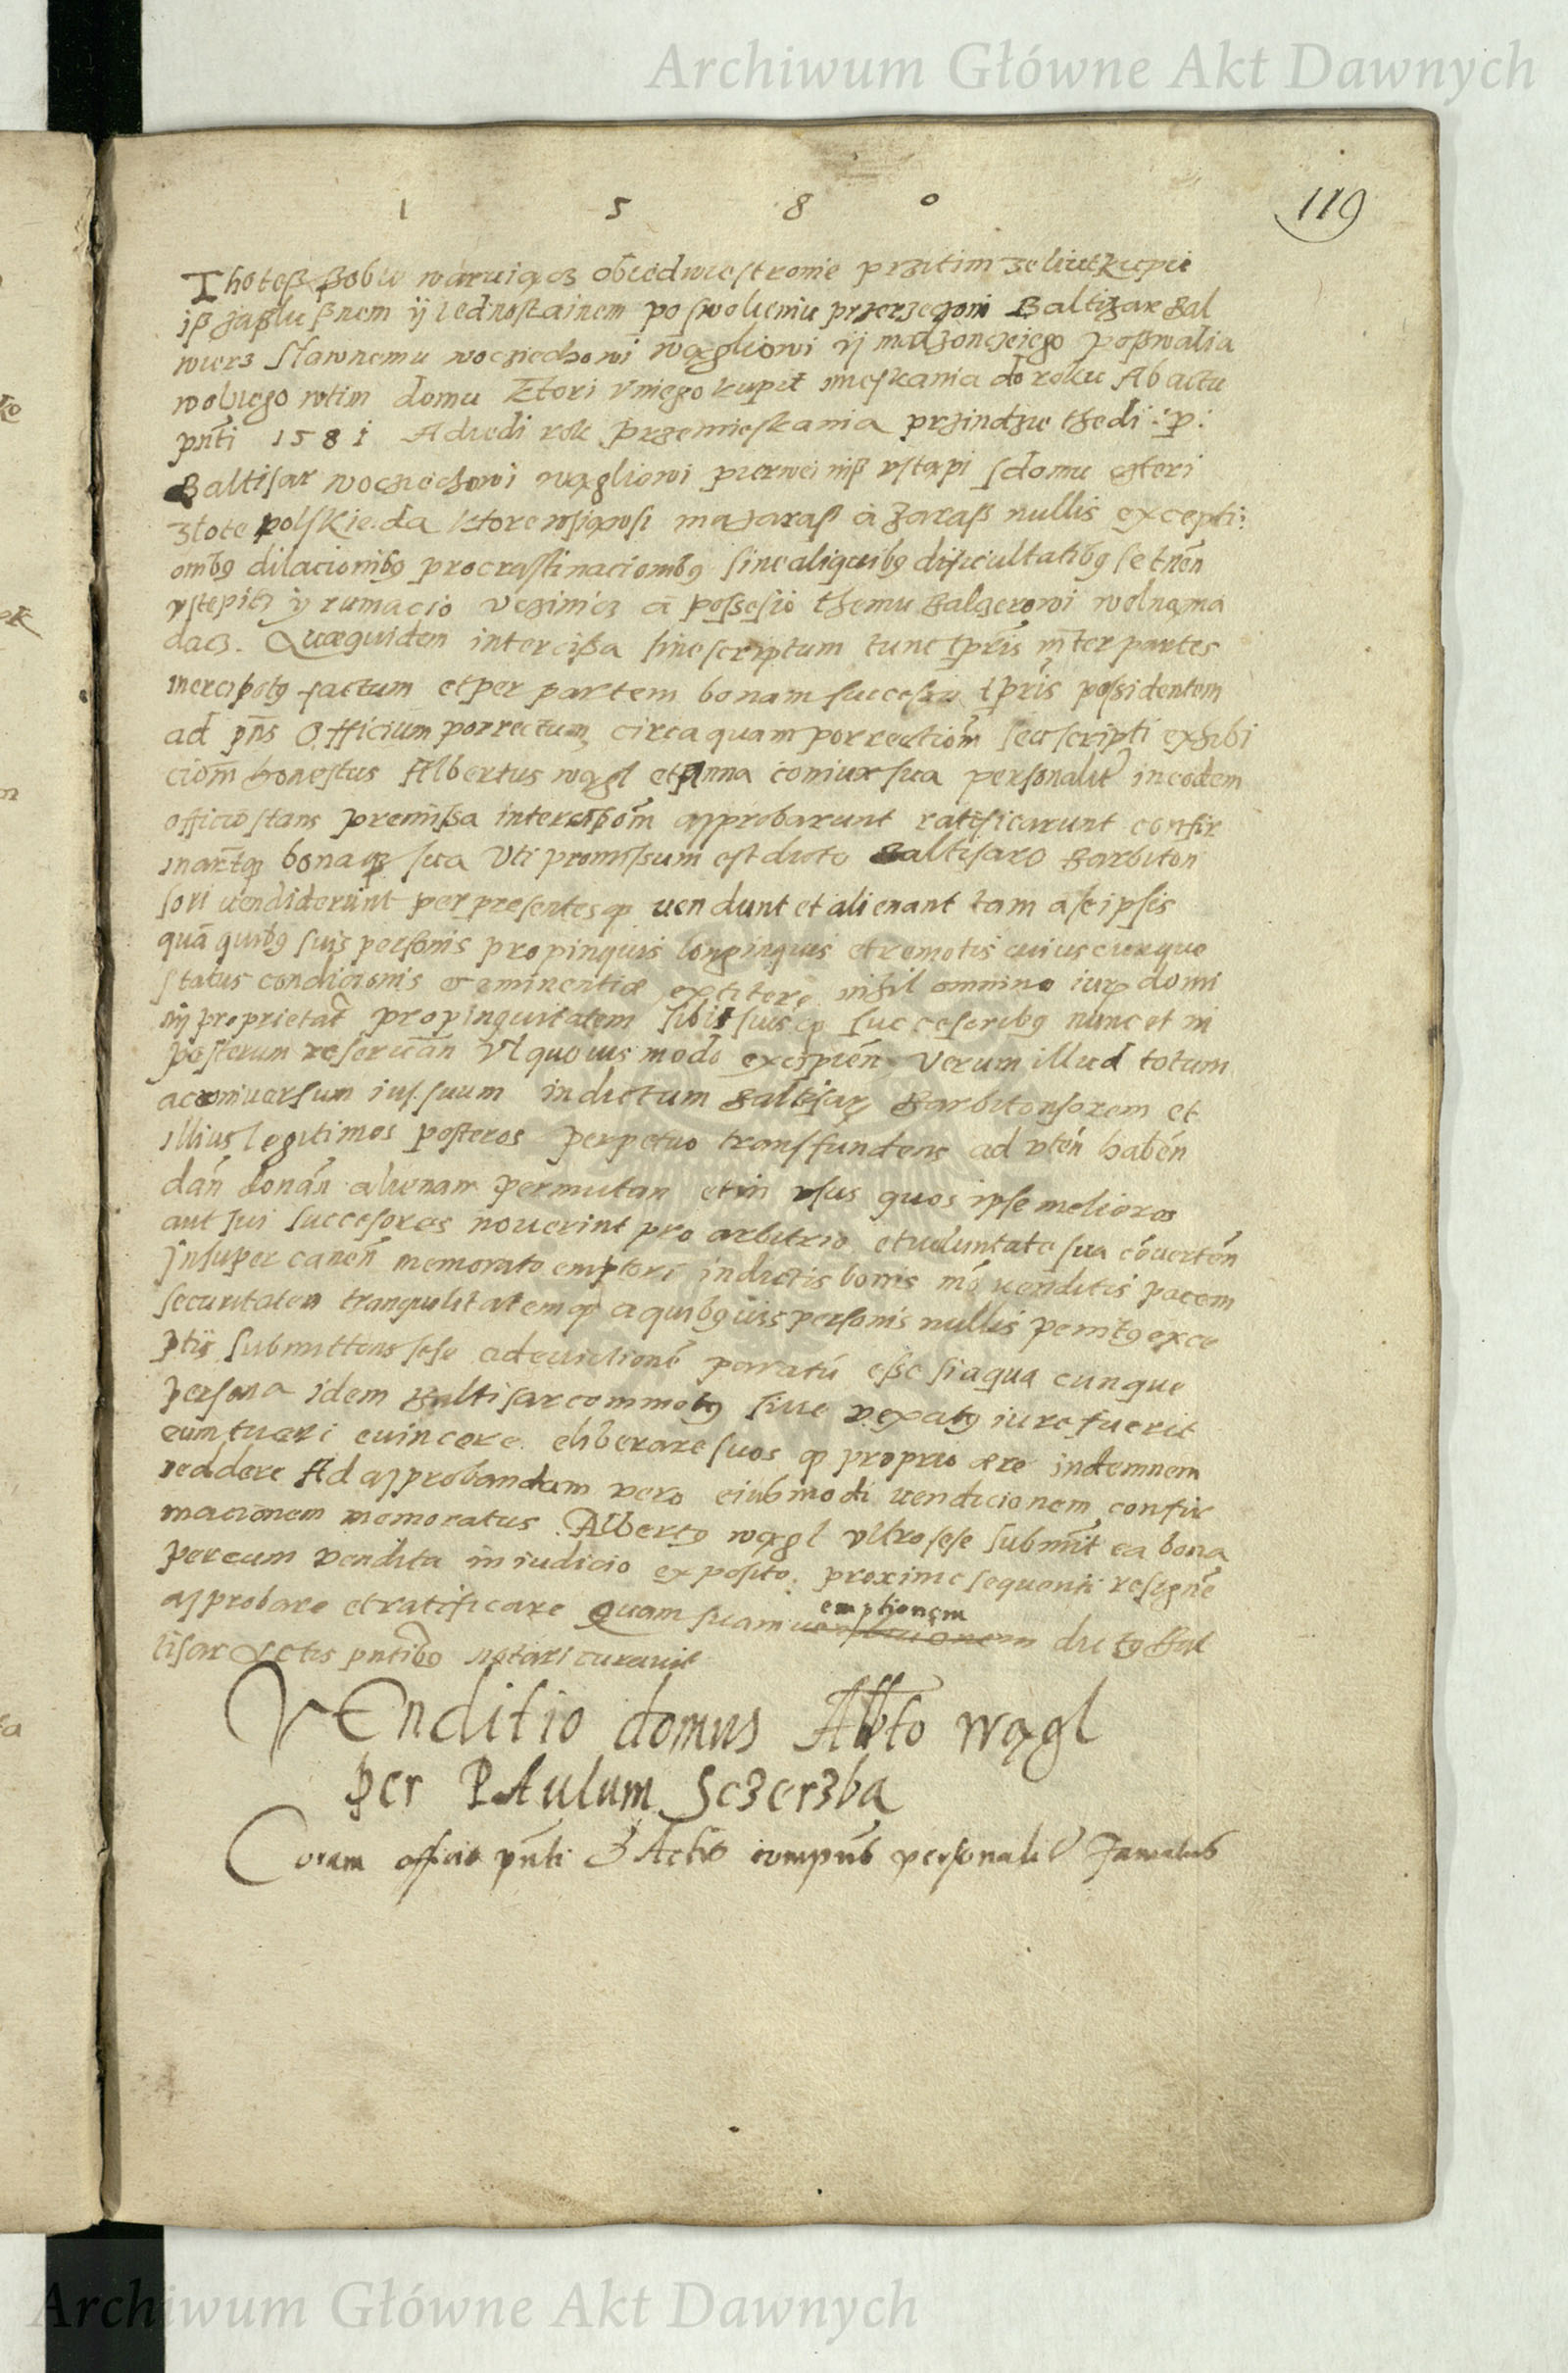 Archiwum Główne Akt Dawnych
1 5 8 0
119
Thoteß ßobie waruiącz obiedwiestronie przitim zeliutkupie
iß zaßlu ßnem ÿ iednostainem poswoleniu przerzeczoni Baltizar Bal
wierz Slawnemu wocziechowi wągliowi ÿ małzonczeiego poßwalia
wolnego wtim domu Ktori vniego kupił mieskania do roku Ab actu
pnti 1581 A kiedi rok przemieskania przindzie thedi :p:
Baltisar wocziechowi wągliowi pierwei niß vstąpi sdomu czteri
złote polskie da ktore wsiąwsi ma zaraß a zaraß nullis excepti:
onibus dilacionibus procrastinacionibus sine aliquibus dificultatibus se tnen
vstępicz y rumacio vczinicz a possesio themu Balgerowi wolną ma
dacz. Quæquidem intercißa sine scriptum tunc ipris inter partes
factum et per partem bonam ipris possidentem
ad pns Officium porrectum, circa quam porrectionem seu scripti exhibi
ciom honestus Albertus wągl et Anna coniux sua personaliter in eodem
officio stans premissa approbarunt ratificarunt confir
marutque bonaque sua Uti promissum est dicto Baltisaro Barbiton
sori uendiderunt per presentesque uendunt et alienant tam a se ipsis
quā quibus suis personis propinquis longinquis et remotis cuiuscunque
status condicionis et eminentiæ extitere nihil omnino iuris domi
nij proprietat propinquitatem sibi suisque successoribus nunc et in
posterum reseruan Vl quouis modo excipien Verum illud totum
ac uniuersum ius suum in dictum Baltisar Barbitonsorem et
illius legitimos posteros perpetuo transfundens ad vten haben
dan donan alienam permutan et in vsus quos ipse meliores
aut sui successores nouerint pro arbitrio et uoluntate sua couerten
Insuper cauen memorato emptori in dictis bonis mo uenditis pacem
securitatem tranquilitatemque a quibusuis personis nullis penitus exce
ptis submittens sese ad euictione paratu esse si a qua cunque
persona idem Baltisar commotus siue vexatus iure fuerit
eum tueri euincere eliberare suosque proprio ære indemnem
reddere Ad approbandam vero eiusmodi uendicionem confir
macionem memoratus Albertus wągl vltro sese submit ea bona
per eum vendita in iudicio exposito proxime sequenti resigne
approbare et ratificare Quam suam emptionem dictus Bal
tisar Actis pntibus notari curauit
VEnditio domus Albto wągl
per PAulum Sczerzba
Coram officio pnti & Actis compns personaliter Famatus
Archiwum Główne Akt Dawnych